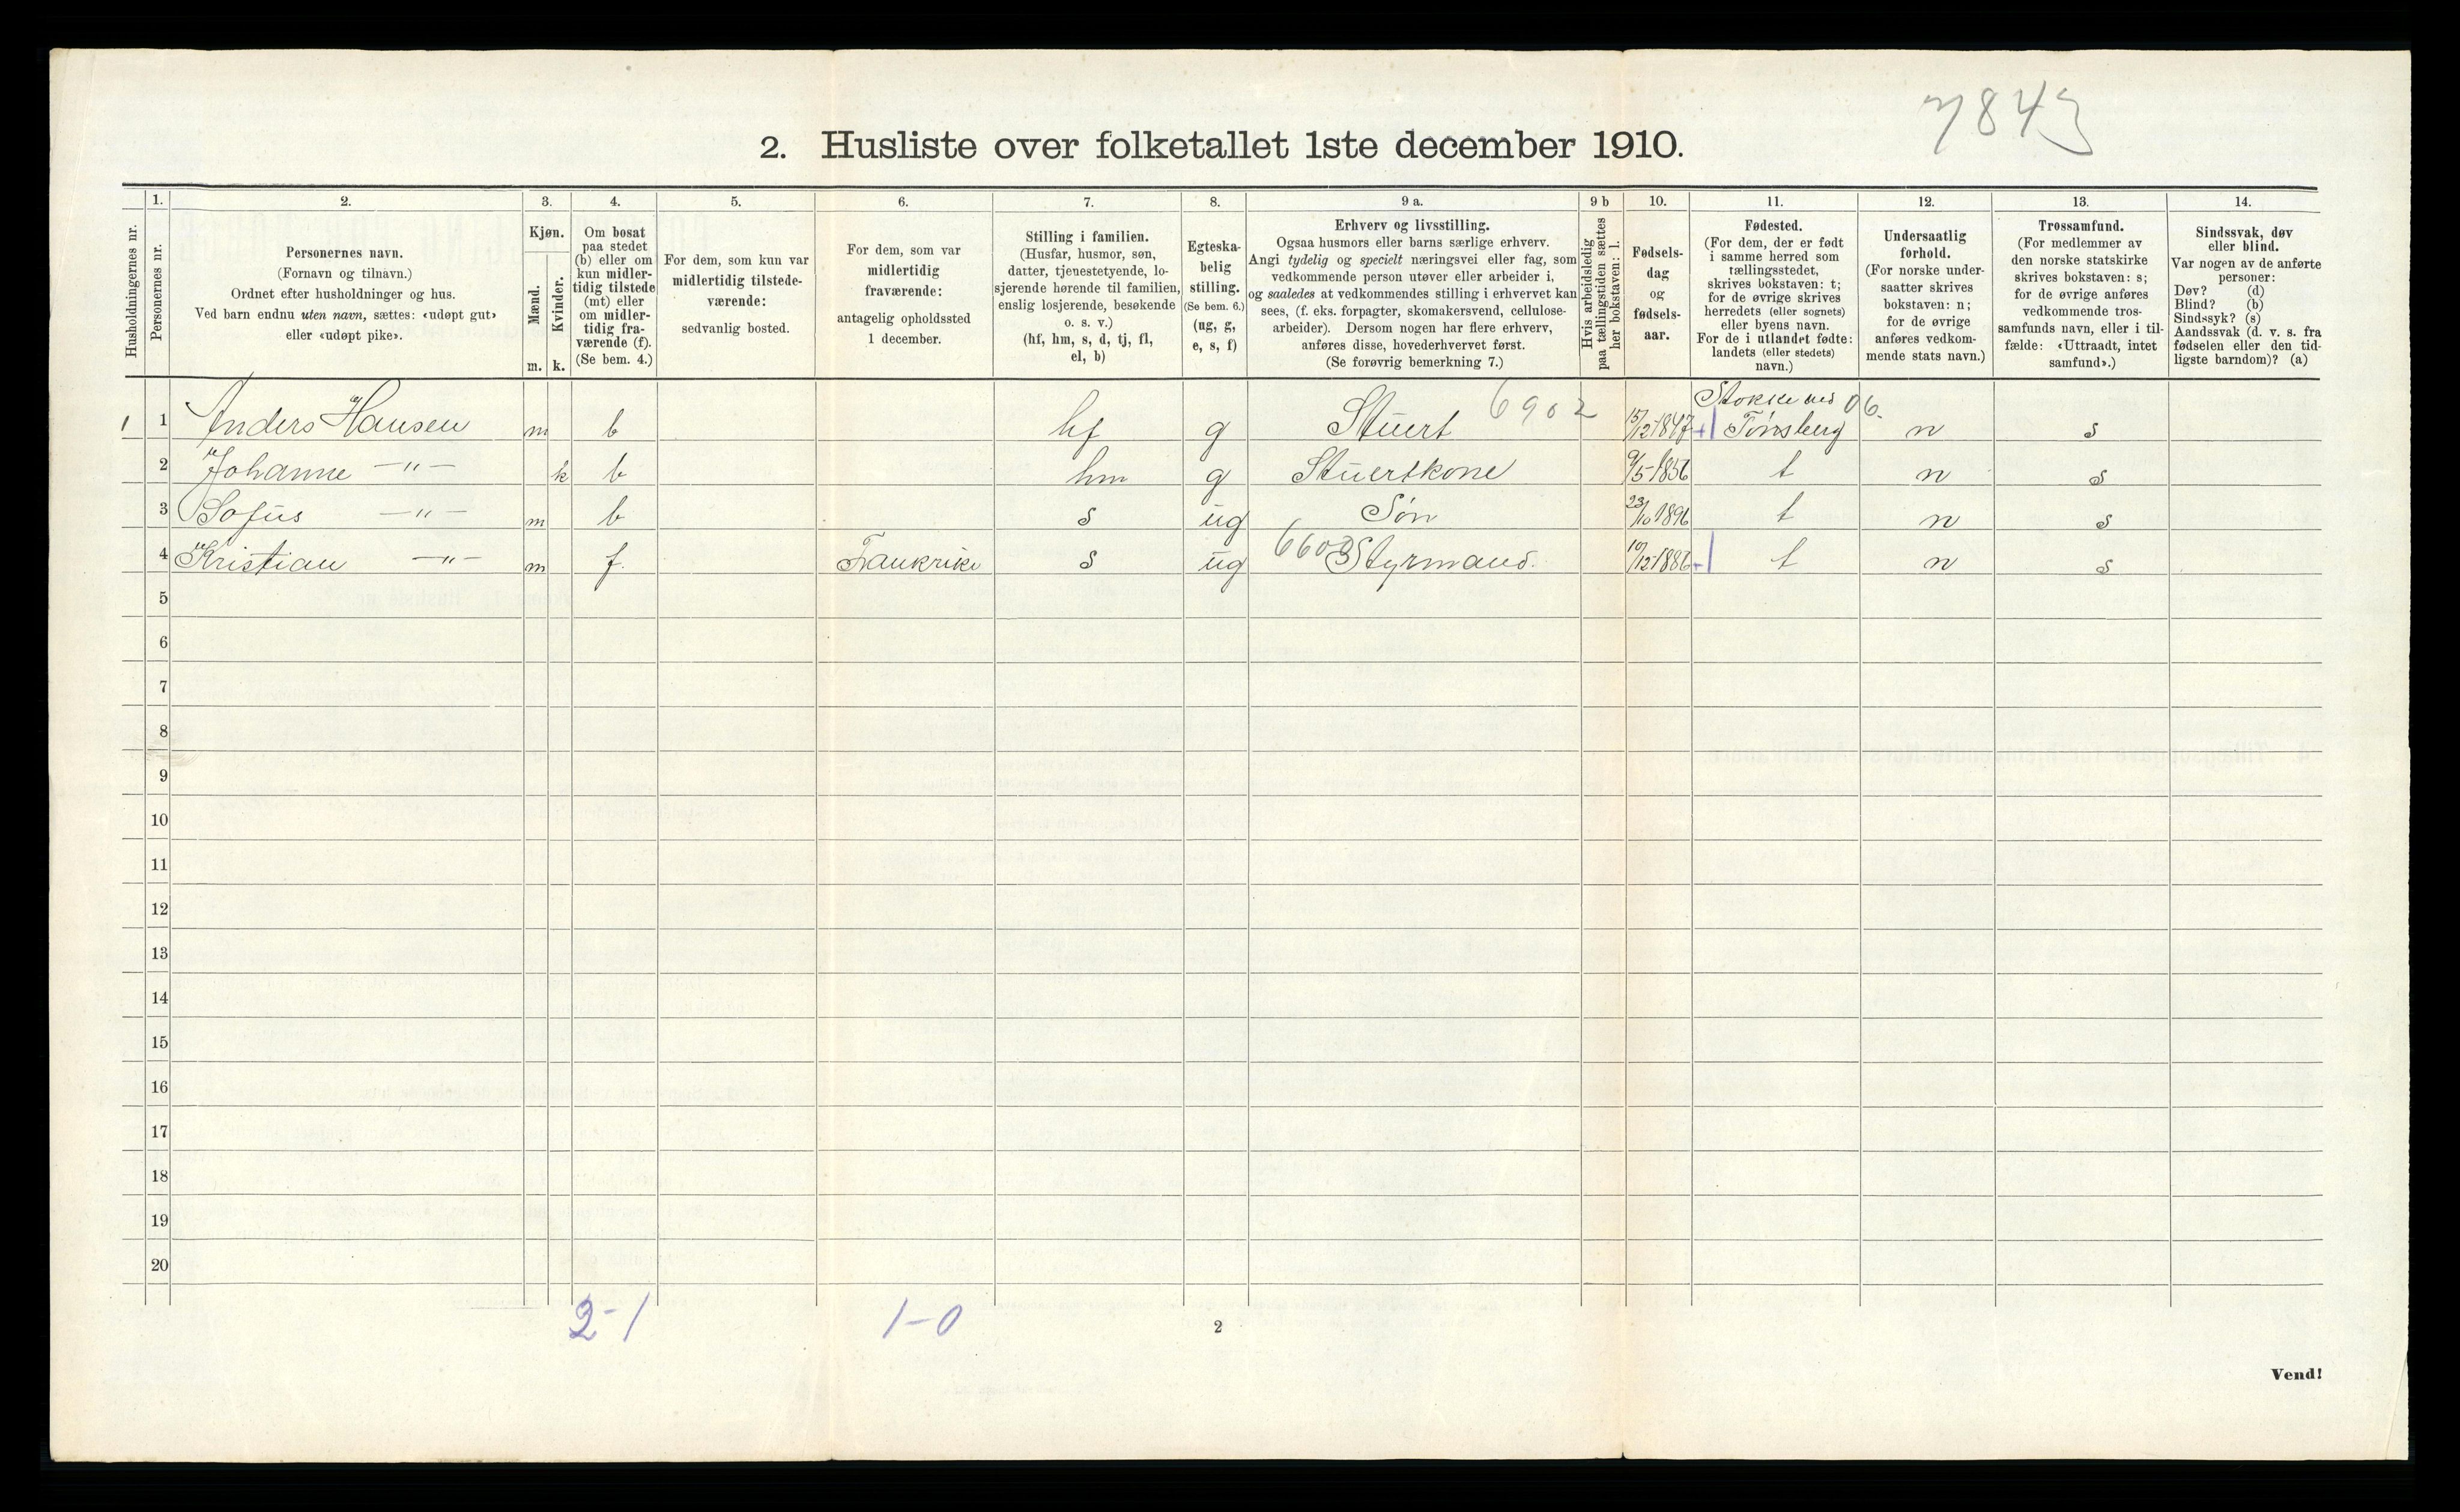 7843
2. Husliste over folketallet 1ste december 1910.
Husholdningernes nr.
1.
Personernes nr.
2.
Personernes navn.
(Fornavn og tilnavn.)
Ordnet efter husholdninger og hus.
Ved barn endnu uten navn, sættes: «udøpt gut»
eller «udøpt pike».
3.
Kjøn.
Mænd.
Kvinder.
m. k.
4.
Om bosat
paa stedet
(b) eller om
kun midler-
tidig tilstede
(mt) eller
om midler-
tidig fra-
værende (f).
(Se bem. 4.)
5.
For dem, som kun var
midlertidig tilstede-
værende:
sedvanlig bosted.
6.
For dem, som var
midlertidig
fraværende:
antagelig opholdssted
1 december.
7.
Stilling i familien.
(Husfar, husmor, søn,
datter, tjenestetyende, lo-
sjerende hørende til familien,
enslig losjerende, besøkende
o. s. v.)
(hf, hm, s, d, tj, fl,
el, b)
8.
Egteska-
belig
stilling.
(Se bem. 6.)
(ug, g,
e, s, f)
9 a.
Erhverv og livsstilling.
Ogsaa husmors eller barns særlige erhverv.
Angi tydelig og specielt næringsvei eller fag, som
vedkommende person utøver eller arbeider i,
og saaledes at vedkommendes stilling i erhvervet kan
sees, (f. eks. forpagter, skomakersvend, cellulose-
arbeider). Dersom nogen har flere erhverv,
anføres disse, hovederhvervet først.
(Se forøvrig bemerkning 7.)
9 b
Hvis arbeidsledig
paa tællingstiden sættes
her bokstaven: l.
10.
Fødsels-
dag
og
fødsels-
aar.
11.
Fødested.
(For dem, der er født
i samme herred som
tællingsstedet,
skrives bokstaven: t;
for de øvrige skrives
herredets (eller sognets)
eller byens navn.
For de i utlandet fødte:
landets (eller stedets)
navn.)
12.
Undersaatlig
forhold.
(For norske under-
saatter skrives
bokstaven: n;
for de øvrige
anføres vedkom-
mende stats navn.)
13.
Trossamfund.
(For medlemmer av
den norske statskirke
skrives bokstaven: s;
for de øvrige anføres
vedkommende tros-
samfunds navn, eller i til-
fælde: «Uttraadt, intet
samfund».)
14.
Sindssvak, døv
eller blind.
Var nogen av de anførte
personer:
Døv? (d)
Blind? (b)
Sindssyk? (s)
Aandssvak (d. v. s. fra
fødselen eller den tid-
ligste barndom)? (a)
1 1 Anders Hansen m b hf g Stuert 6902 15/12-1847 +| Stokke ved Tønsberg 06. n s
2 Johanne —"— k b hm g Stuertkone 9/5-1856 t n s
3 Sofus —"— m b s ug Søn 23/10 1896 t n s
4 Kristian —"— m f. Frankrike s ug 6603 Styrmand. 10/12-1886 +| t n s
5
6
7
8
9
10
11
12
13
14
15
16
17
18
19
20
2-1 1-0
2
Vend!